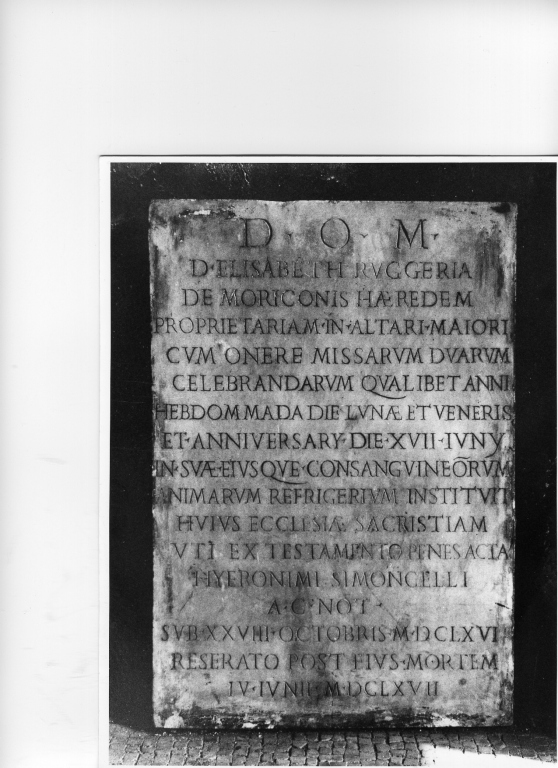 D · O · M ·
D · ELISABETH RVGGERIA
DE MORICONIS HÆREDEM
PROPRIETARIAM · IN · ALTARI · MAIORI
CVM ONERE MISSARVM DVARVM
CELEBRANDARVM QVALIBET ANNI
HEBDOMMADA DIE LVNÆ ET VENERIS
ET · ANNIVERSARY · DIE · XVII · IVNY
IN · SVÆ · EIVSQVE · CONSANGVINEŌRVM
ANIMARVM REFRIGERIVM INSTITVIT
HVIVS ECCLESIÆ SACRISTIAM
VTI EX TESTAMENTO PENES ACTA
HYERONIMI SIMONCELLI
A · C · NOT ·
SVB · XXVIII · OCTOBRIS · M · DCLXVI
RESERATO POST EIVS · MORTEM
IV · IVNII · M · DCLXVII